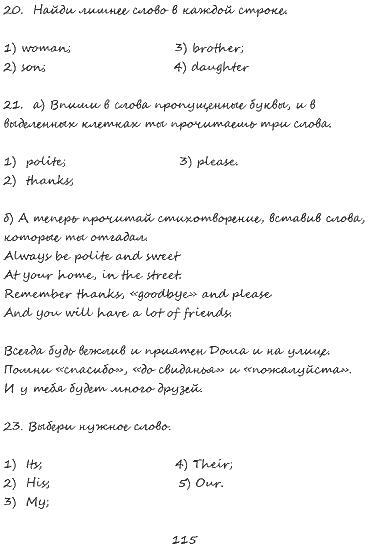 20. Найди лишнее слово в каждой строке.
1) woman; 3) brother;
2) son; 4) daughter
21. а) Впиши в слова пропущенные буквы, и в
выделенных клетках ты прочитаешь три слова.
1) polite; 3) please.
2) thanks;
б) А теперь прочитай стихотворение, вставив слова,
которые ты отгадал.
Always be polite and sweet
At your home, in the street.
Remember thanks, «goodbye» and please
And you will have a lot of friends.
Всегда будь вежлив и приятен Дома и на улице.
Помни «спасибо», «до свиданья» и «пожалуйста».
И у тебя будет много друзей.
23. Выбери нужное слово.
1) Its; 4) Their;
2) His; 5) Our.
3) My;
115